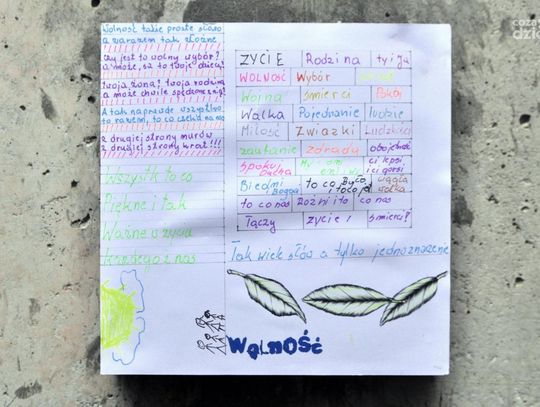 Wolność takie proste słowo
a zarazem tak złożone
Czy jest to wolny wybór?
a może, są to twoje dzieci?
Twoja żona? twoja rodzina
a może chwile spędzone z nią?
A tak naprawdę wszystko
to razem, to co czeka na nas
z drugiej strony murów
z drugiej strony krat!!!
Wszystko to co
Piękne i tak
Ważne w życiu
każdego z nas
ŻYCIE Rodzina ty i ja
WOLNOŚĆ Wybór
Wojna śmierci Pokój
Walka Pojednanie ludzie
Miłość Związki Ludzkości
zaufanie zdrada obojętność
Spokój ducha ci lepsi ci gorsi
Biedni i Bogaci to co było to co jest ciągła walka
to co nas Różni i to co nas
Łączy życie i śmierci?
Tak wiele słów a tylko jednoznaczne
WOLNOŚĆ
coza
dzie